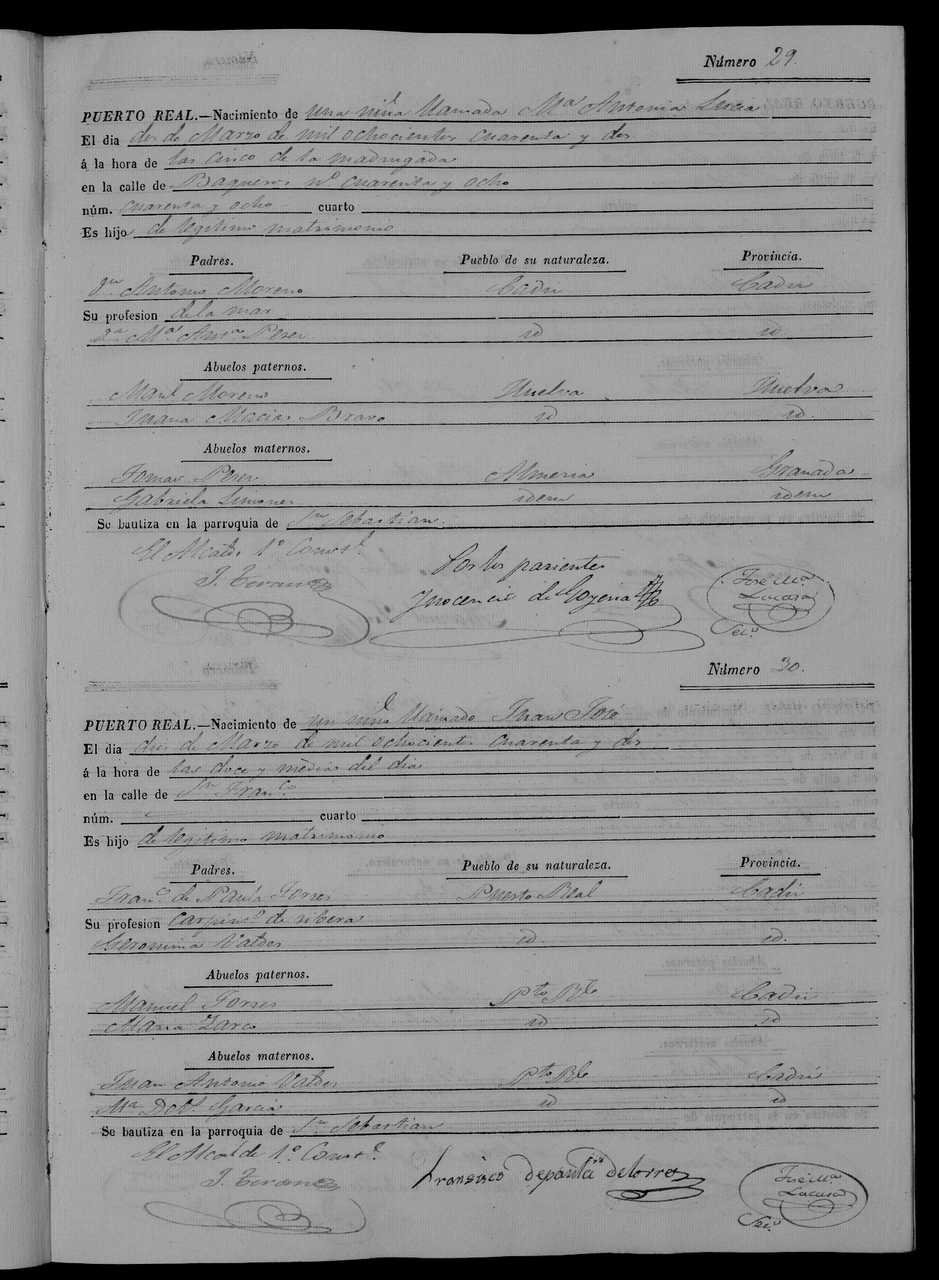 Número 29.
PUERTO REAL.—Nacimiento de una niña llamada Mª Antonia Lucia
El dia dos de Marzo de mil ochocientos cuarenta y dos
á la hora de las cinco de la madrugada
en la calle de Baqueros nº cuarenta y ocho
núm. cuarenta y ocho cuarto
Es hijo de legitimo matrimonio
Padres. Pueblo de su naturaleza. Provincia.
Dn Antonio Moreno Cadiz Cadiz
Su profesion de la mar
Dª Mª Antª Perez id id.
Abuelos paternos.
Manl Moreno Huelva Huelva
Juana Macias Bravo id id.
Abuelos maternos.
Tomas Perez Almeria Granada
Gabriela Simenes idem idem
Se bautiza en la parroquia de Sn Sebastian.
El Alcalde 1º Constl
Por los parientes
J. Teran
Inocencio de
José Mª
Lacasa
Secº
Número 30.
PUERTO REAL.—Nacimiento de un niño llamado Juan José
El dia dos de Marzo de mil ochocientos cuarenta y dos
á la hora de las doce y media del dia
en la calle de Sn Franco
núm. cuarto
Es hijo de legitimo matrimonio
Padres. Pueblo de su naturaleza. Provincia.
Franco de Paula Torres Puerto Real Cadiz
Su profesion carpintº de ribera
Geronima Valdes id. id.
Abuelos paternos.
Manuel Torres Pto Rl Cadiz
Maria Zarco id id
Abuelos maternos.
Juan Antonio Valdes Pto Rl Cadiz
Mª Dols Garcia id id
Se bautiza en la parroquia de Sn Sebastian
El Alcalde 1º Constl
J. Teran
Fransisco depaula detorres
José Mª
Lacasa
Secº